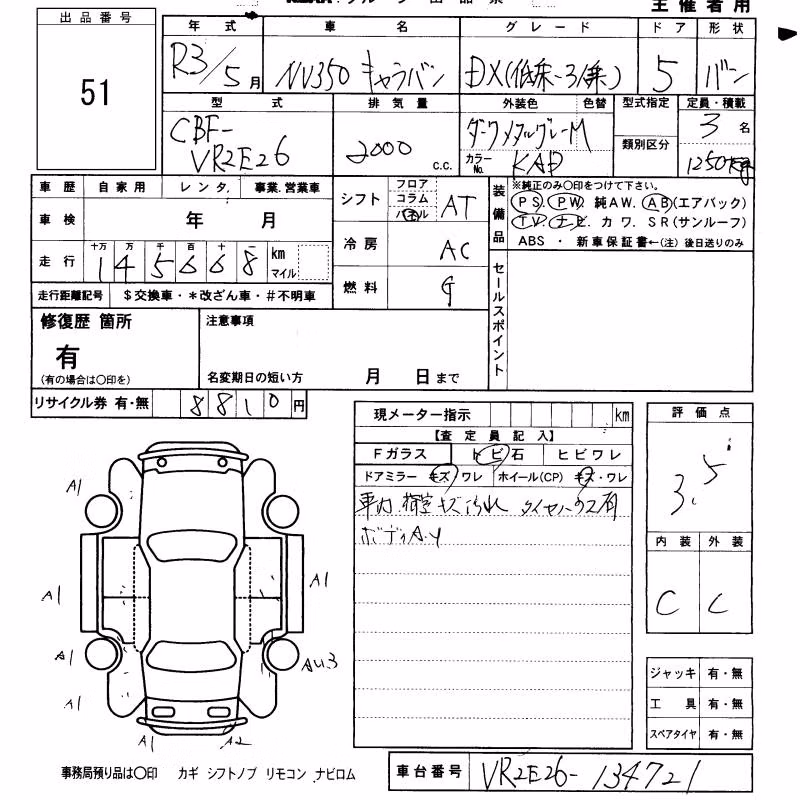 主催者用
出品番号
51
年式 車名 グレード ドア 形状
R3/5月 NV350 キャラバン DX(低床-3/乗) 5 バン
型式 排気量 外装色 色替 型式指定 定員・積載
CBF-
VR2E26
2000 c.c.
ダークメタルグレーM
カラーNo. KAD
類別区分
3名
1250kg
車歴 自家用 レンタ. 事業.営業車
車検 年 月
走行 十万 万 千 百 十 一 km マイル
145668
走行距離記号 $交換車・*改ざん車・#不明車
シフト フロア コラム パネル AT
冷房 AC
燃料 G
装備品
※純正のみ〇印をつけて下さい。
PS. PW. 純AW. AB(エアバック)
TV. ナビ. カワ. SR(サンルーフ)
ABS ・ 新車保証書←(注) 後日送りのみ
セールスポイント
修復歴 箇所
有
(有の場合は〇印を)
注意事項
名変期日の短い方 月 日まで
リサイクル券 有・無 8810円
現メーター指示 km
【査定員記入】
Fガラス トビ石 ヒビワレ
ドアミラー キズ ワレ ホイール(CP) キズ・ワレ
車内 荷室 キズ 汚れ
ボディA.Y
評価点
3.5
内装 外装
C C
A1
A1
A1
A1
AU3
A1
A1 A2
ジャッキ 有・無
工具 有・無
スペアタイヤ 有・無
事務局預り品は〇印 カギ シフトノブ リモコン ナビロム
車台番号 VR2E26-134721